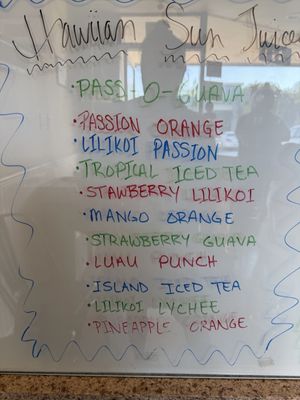 Hawiian Sun Juices
• PASS-O-GUAVA
• PASSION ORANGE
• LILIKOI PASSION
• TROPICAL ICED TEA
• STAWBERRY LILIKOI
• MANGO ORANGE
• STRAWBERRY GUAVA
• LUAU PUNCH
• ISLAND ICED TEA
• LILIKOI LYCHEE
• PINEAPPLE ORANGE